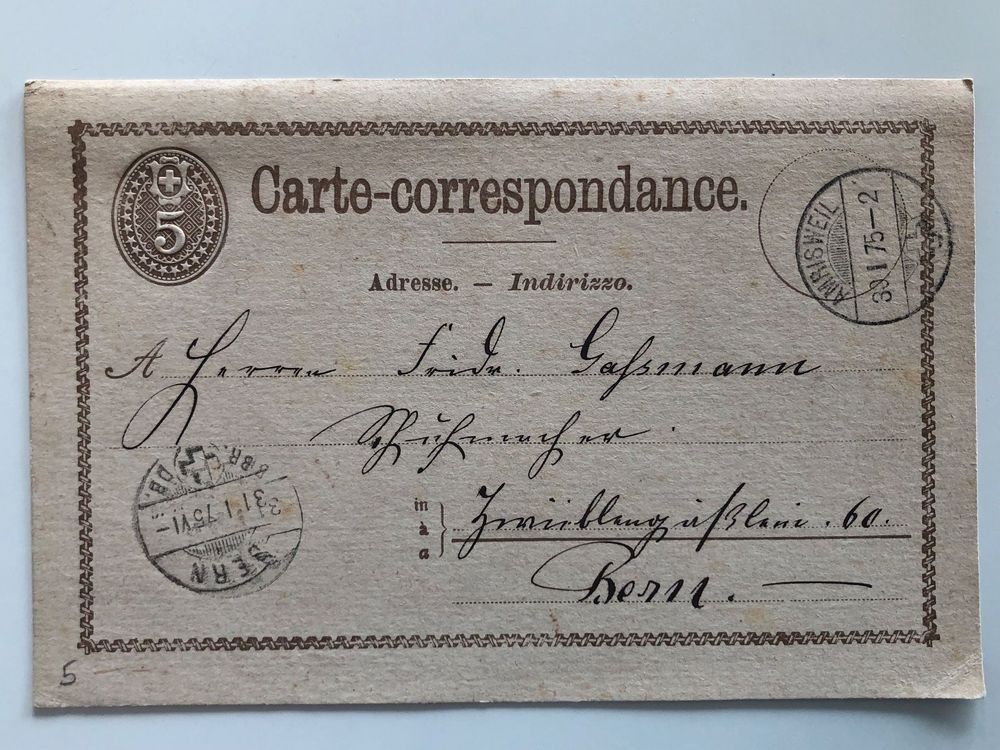 5
Carte-correspondance.
Adresse. — Indirizzo.
AMRISWEIL
30 I 75–2
A Herren Fridr. Gaßmann
Schuhmacher.
in
à
a
Zwieblengäßlein. 60.
Bern. —
BERN
31 I 75 VI –
5